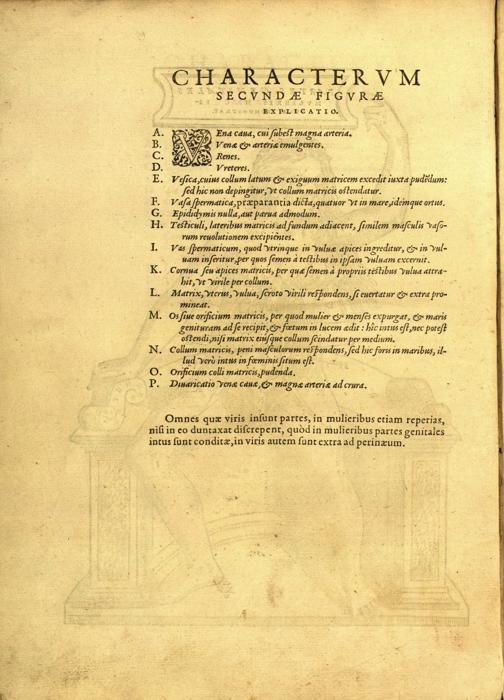 CHARACTERVM
SECVNDÆ FIGVRÆ
EXPLICATIO.
A. VEna caua, cui subest magna arteria.
B. Venæ & arteriæ emulgentes.
C. Renes.
D. Vreteres.
E. Vesica, cuius collum latum & exiguum matricem excedit iuxta pudēdum:
sed hic non depingitur, vt collum matricis ostendatur.
F. Vasa spermatica, præparantia dicta, quatuor vt in mare, idemque ortus.
G. Epididymis nulla, aut parua admodum.
H. Testiculi, lateribus matricis ad fundum adiacent, similem masculis vaso-
rum reuolutionem excipientes.
I. Vas spermaticum, quod vtrinque in vuluæ apices ingreditur, & in vul-
uam inseritur, per quos semen à testibus in ipsam vuluam excernit.
K. Cornua seu apices matricis, per quæ semen à propriis testibus vulua attra-
hit, vt virile per collum.
L. Matrix, vterus, vulua, scroto virili respondens, si euertatur & extra pro-
mineat.
M. Os siue orificium matricis, per quod mulier & menses expurgat, & maris
genituram ad se recipit, & fœtum in lucem ædit: hic intus est, nec potest
ostendi, nisi matrix eiusque collum scindatur per medium.
N. Collum matricis, peni masculorum respondens, sed hic foris in maribus, il-
lud verò intus in fœminis situm est.
O. Orificium colli matricis, pudenda.
P. Diuaricatio venæ cauæ, & magnæ arteriæ ad crura.
Omnes quæ viris insunt partes, in mulieribus etiam reperias,
nisi in eo duntaxat discrepent, quòd in mulieribus partes genitales
intus sunt conditæ, in viris autem sunt extra ad perinæum.